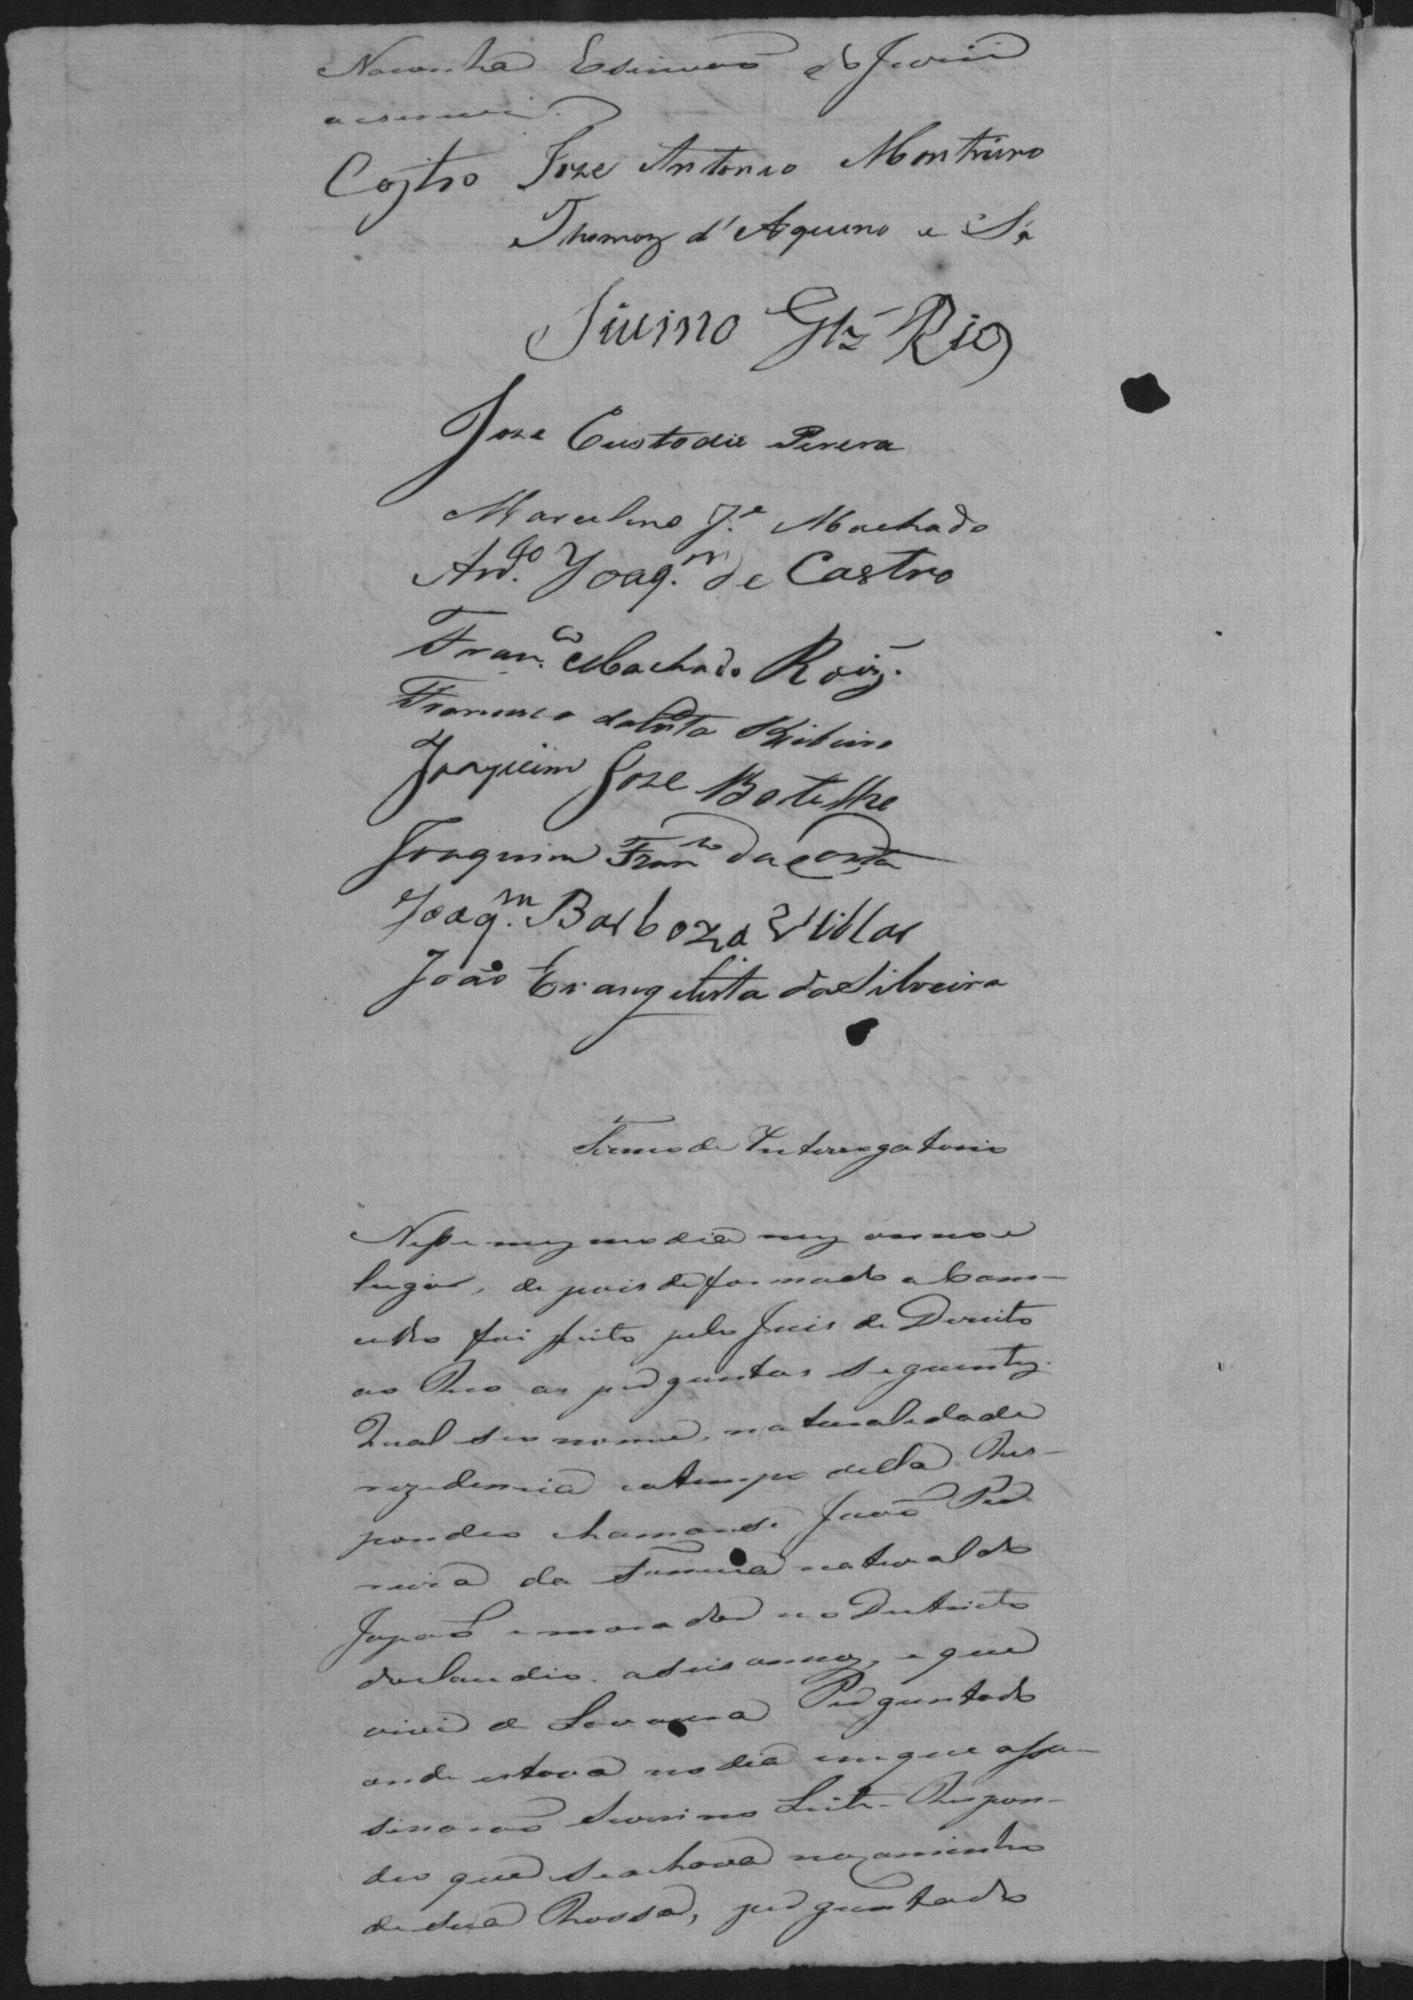 Noronha Escrivaõ do Jurii
o escrevi.
Castro Joze Antonio Monteiro
Thomaz d'Aquino e Sá
Sivino Glz Rios
Joze Custodio Perera
Marcelino J.e Machado
An.do Joaq.m de Castro
Fran.co Machado Roiz.
Francisco da Costa Ribeiro
Joaquim Joze Botelho
Joaquim Fran.co da Costa
Joaq.m Barboza Villar
João Evangelista da Silveira
Termo de Interrogatorio
Neste mesmo dia mez anno e
lugar, depois de formado o Cons-
elho foi feito pelo Juis de Dereito
ao Reo as perguntas seguintes.
Qual seo nome, naturalidade
rezedencia e o tempo della Res-
pondeo chamarse Joaõ Per
reira da natural do
Japaõ e morador no Destricto
do Claudio. a seis annos, e que
vive de Lavoura Perguntado
onde estava no dia em que assa-
sinaraõ Severino Leite. Respon-
deo que se achava no caminho
de sua Rossa, perguntado